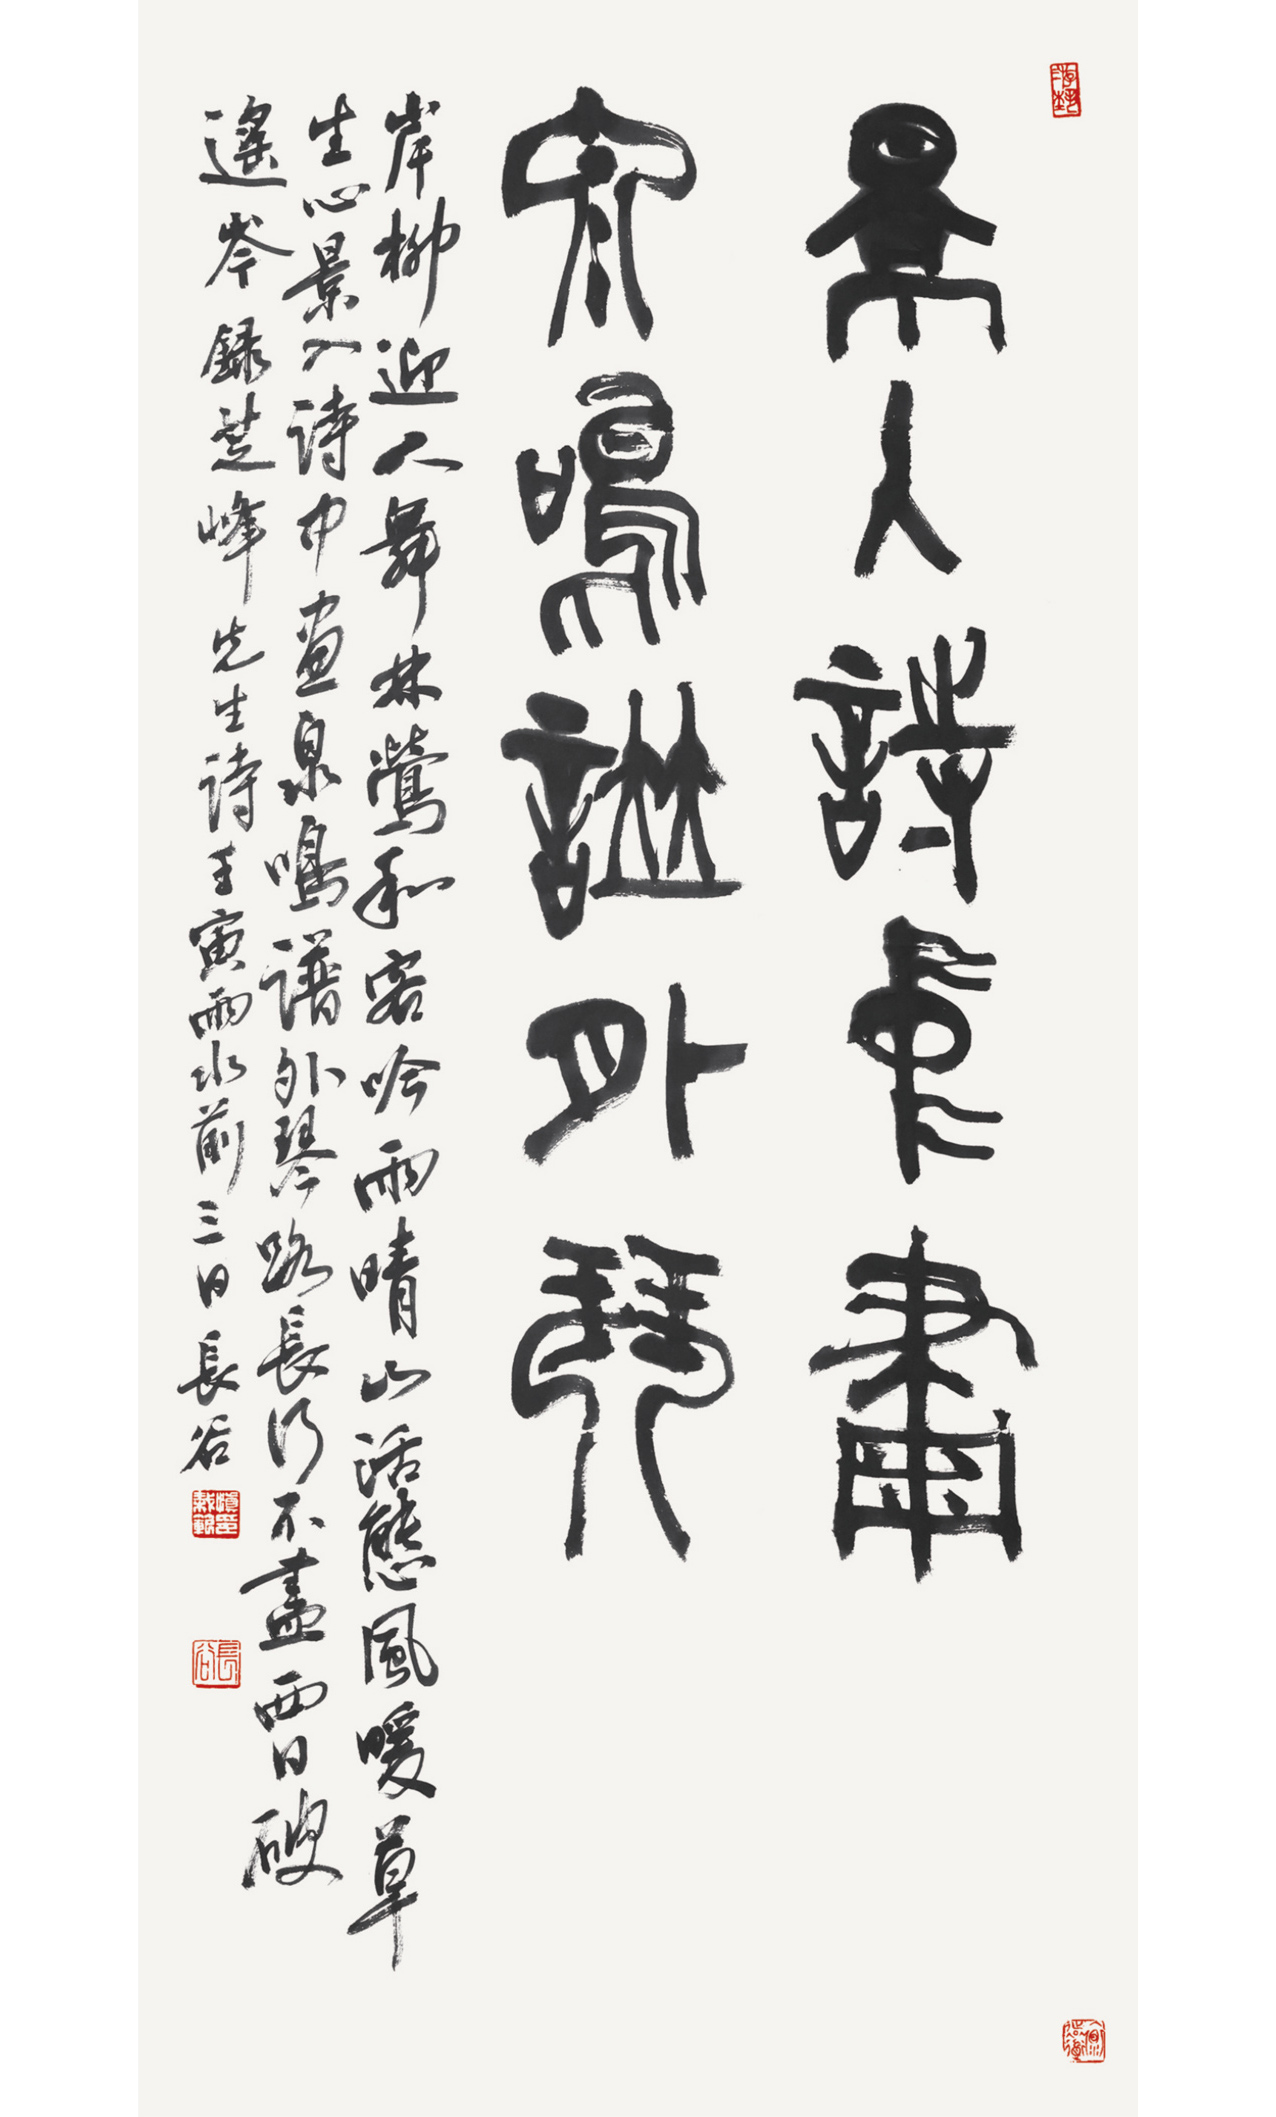 景入詩中畫
泉鳴譜外琴
岸柳迎人舞林鶯和客吟雨晴山活態風暖草
生心景入詩中画泉鳴譜外琴路長行不盡西日破
遙岑録芝峰先生詩壬寅雨水前三日長谷
長谷